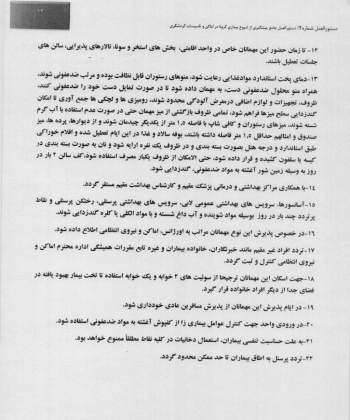 دستورالعمل شماره ۲: دستورالعمل جامع پیشگیری از شیوع بیماری کرونا در اماکن و تاسیسات گردشگری
۱۲- تا زمان حضور این مهمانان خاص در واحد اقامتی، بخش های استخر و سونا، تالارهای پذیرایی، سالن های
جلسات تعطیل باشند.
۱۳-دمای پخت استاندارد موادغذایی رعایت شود، منوهای رستوران قابل نظافت بوده و مرتب ضدعفونی شوند،
همراه منو محلول ضدعفونی دست، به مهمان داده شود تا در صورت تمایل دست خود را ضدعفونی کنند،
ظروف، تجهیزات و لوازم اضافی درمعرض آلودگی محدود شوند، رومیزی ها و لچکی ها جمع آوری تا امکان
گندزدایی سطح میزها فراهم شود، تمامی ظروف بازگشتی از میز مهمان حتی در صورت عدم استفاده با آب گرم
شسته شوند، میزهای رستوران و کافی شاپ با فاصله ۱.۵ متر از یکدیگر چیدمان شوند و از دیوارها، پرده ها، میز
صندوق و امثالهم حداقل ۱.۵ متر فاصله داشته باشند، بوفه سالاد و غذا در این ایام تعطیل شده و اقلام خوراکی
طبق استاندارد و درجه هتل بصورت بسته بندی و در ظروف یک نفره ارایه شود و نان به صورت بسته بندی در
کیسه یا سلفون کشیده و قرار داده شود، حتی الامکان از ظروف یکبار مصرف استفاده شود، کف سالن ۲ بار در
روز به وسیله زمین شور آغشته به مواد ضدعفونی، گندزدایی شود.
۱۴-با همکاری مراکز بهداشتی و درمانی پزشک مقیم و کارشناس بهداشت مقیم مستقر گردد.
۱۵-آسانسورها، سرویس های بهداشتی عمومی لابی، سرویس های بهداشتی پرسنلی، رختکن پرسنلی و نقاط
پرتردد چند بار در روز بوسیله مواد شوینده و آب داغ شسته و با مواد الکلی یا کلره گندزدایی شوند.
۱۶-در خصوص پذیرش این نوع مهمانان مراتب به اورژانس، اماکن و نیروی انتظامی اطلاع داده شود.
۱۷- تردد افراد غیر مقیم مانند خبرنگاران، خانواده بیماران و غیره تابع مقررات همیشگی اداره محترم اماکن و
نیروی انتظامی کنترل و ثبت گردد.
۱۸-جهت اسکان این مهمانان ترجیحا از سوئیت های ۲ خوابه و یک خوابه استفاده تا تخت بیمار بهبود یافته در
فضای جدا از دیگر افراد خانواده قرار گیرد.
۱۹- در ایام پذیرش این مهمانان از پذیرش مسافرین عادی خودداری شود.
۲۰-در ورودی واحد جهت کنترل عوامل بیماری زا از کفپوش آغشته به مواد ضدعفونی استفاده شود.
۲۱-به علت حساسیت تنفسی بیماران، استعمال دخانیات در کلیه نقاط مطلقاً ممنوع خواهد بود.
۲۲-تردد پرسنل به اطاق بیماران تا حد ممکن محدود گردد.